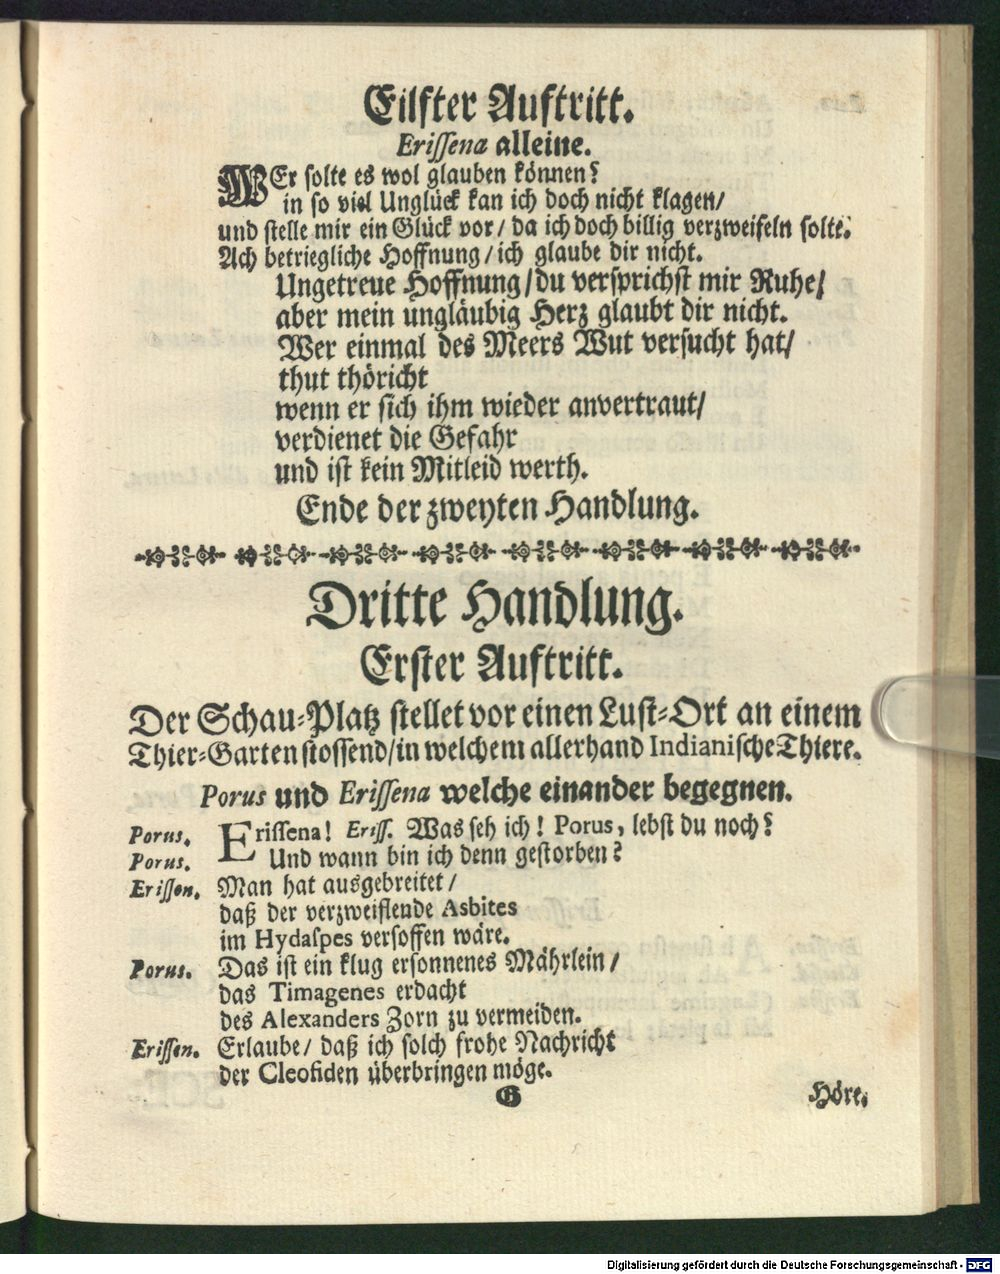 Eilfter Auftritt.
Erissena alleine.
WEr solte es wol glauben können?
in so viel Unglück kan ich doch nicht klagen/
und stelle mir ein Glück vor/ da ich doch billig verzweifeln solte.
Ach betriegliche Hoffnung/ ich glaube dir nicht.
Ungetreue Hoffnung/ du versprichst mir Ruhe/
aber mein ungläubig Herz glaubt dir nicht.
Wer einmal des Meers Wut versucht hat/
thut thöricht
wenn er sich ihm wieder anvertraut/
verdienet die Gefahr
und ist kein Mitleid werth.
Ende der zweyten Handlung.
Dritte Handlung.
Erster Auftritt.
Der Schau-Platz stellet vor einen Lust-Ort an einem
Thier-Garten stossend/ in welchem allerhand Indianische Thiere.
Porus und Erissena welche einander begegnen.
Porus. Erissena! Eriss. Was seh ich! Porus, lebst du noch?
Porus. Und wann bin ich denn gestorben?
Erissen. Man hat ausgebreitet/
daß der verzweiflende Asbites
im Hydaspes versoffen wäre.
Porus. Das ist ein klug ersonnenes Mährlein/
das Timagenes erdacht
des Alexanders Zorn zu vermeiden.
Erissen. Erlaube/ daß ich solch frohe Nachricht
der Cleofiden überbringen möge.
G Höre.
Digitalisierung gefördert durch die Deutsche Forschungsgemeinschaft - DFG